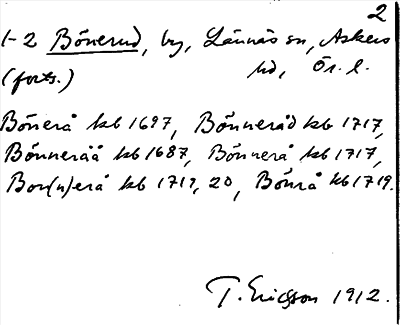 2
1-2 Bönerud, by, Lännäs sn, Askers
(forts.) hd, Ör. l.
Bönerå kb 1697, Bönneråd kb 1717,
Bönneråå kb 1687, Bönnerå kb 1717,
Bon(n)erå kb 1719, 20, Bönrå kb 1719.
T. Ericsson 1912.